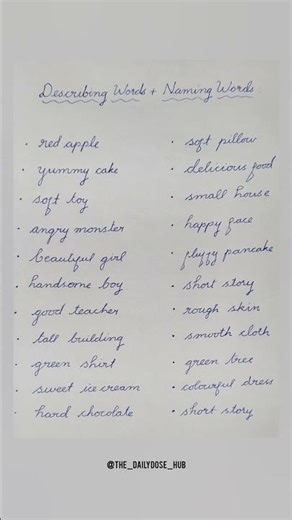 Describing Words + Naming Words
• red apple
• yummy cake
• soft toy
• angry monster
• beautiful girl
• handsome boy
• good teacher
• tall building
• green shirt
• sweet ice cream
• hard chocolate
• soft pillow
• delicious food
• small house
• happy face
• fluffy pancake
• short story
• rough skin
• smooth cloth
• green tree
• colourful dress
• short story
@THE_DAILYDOSE_HUB